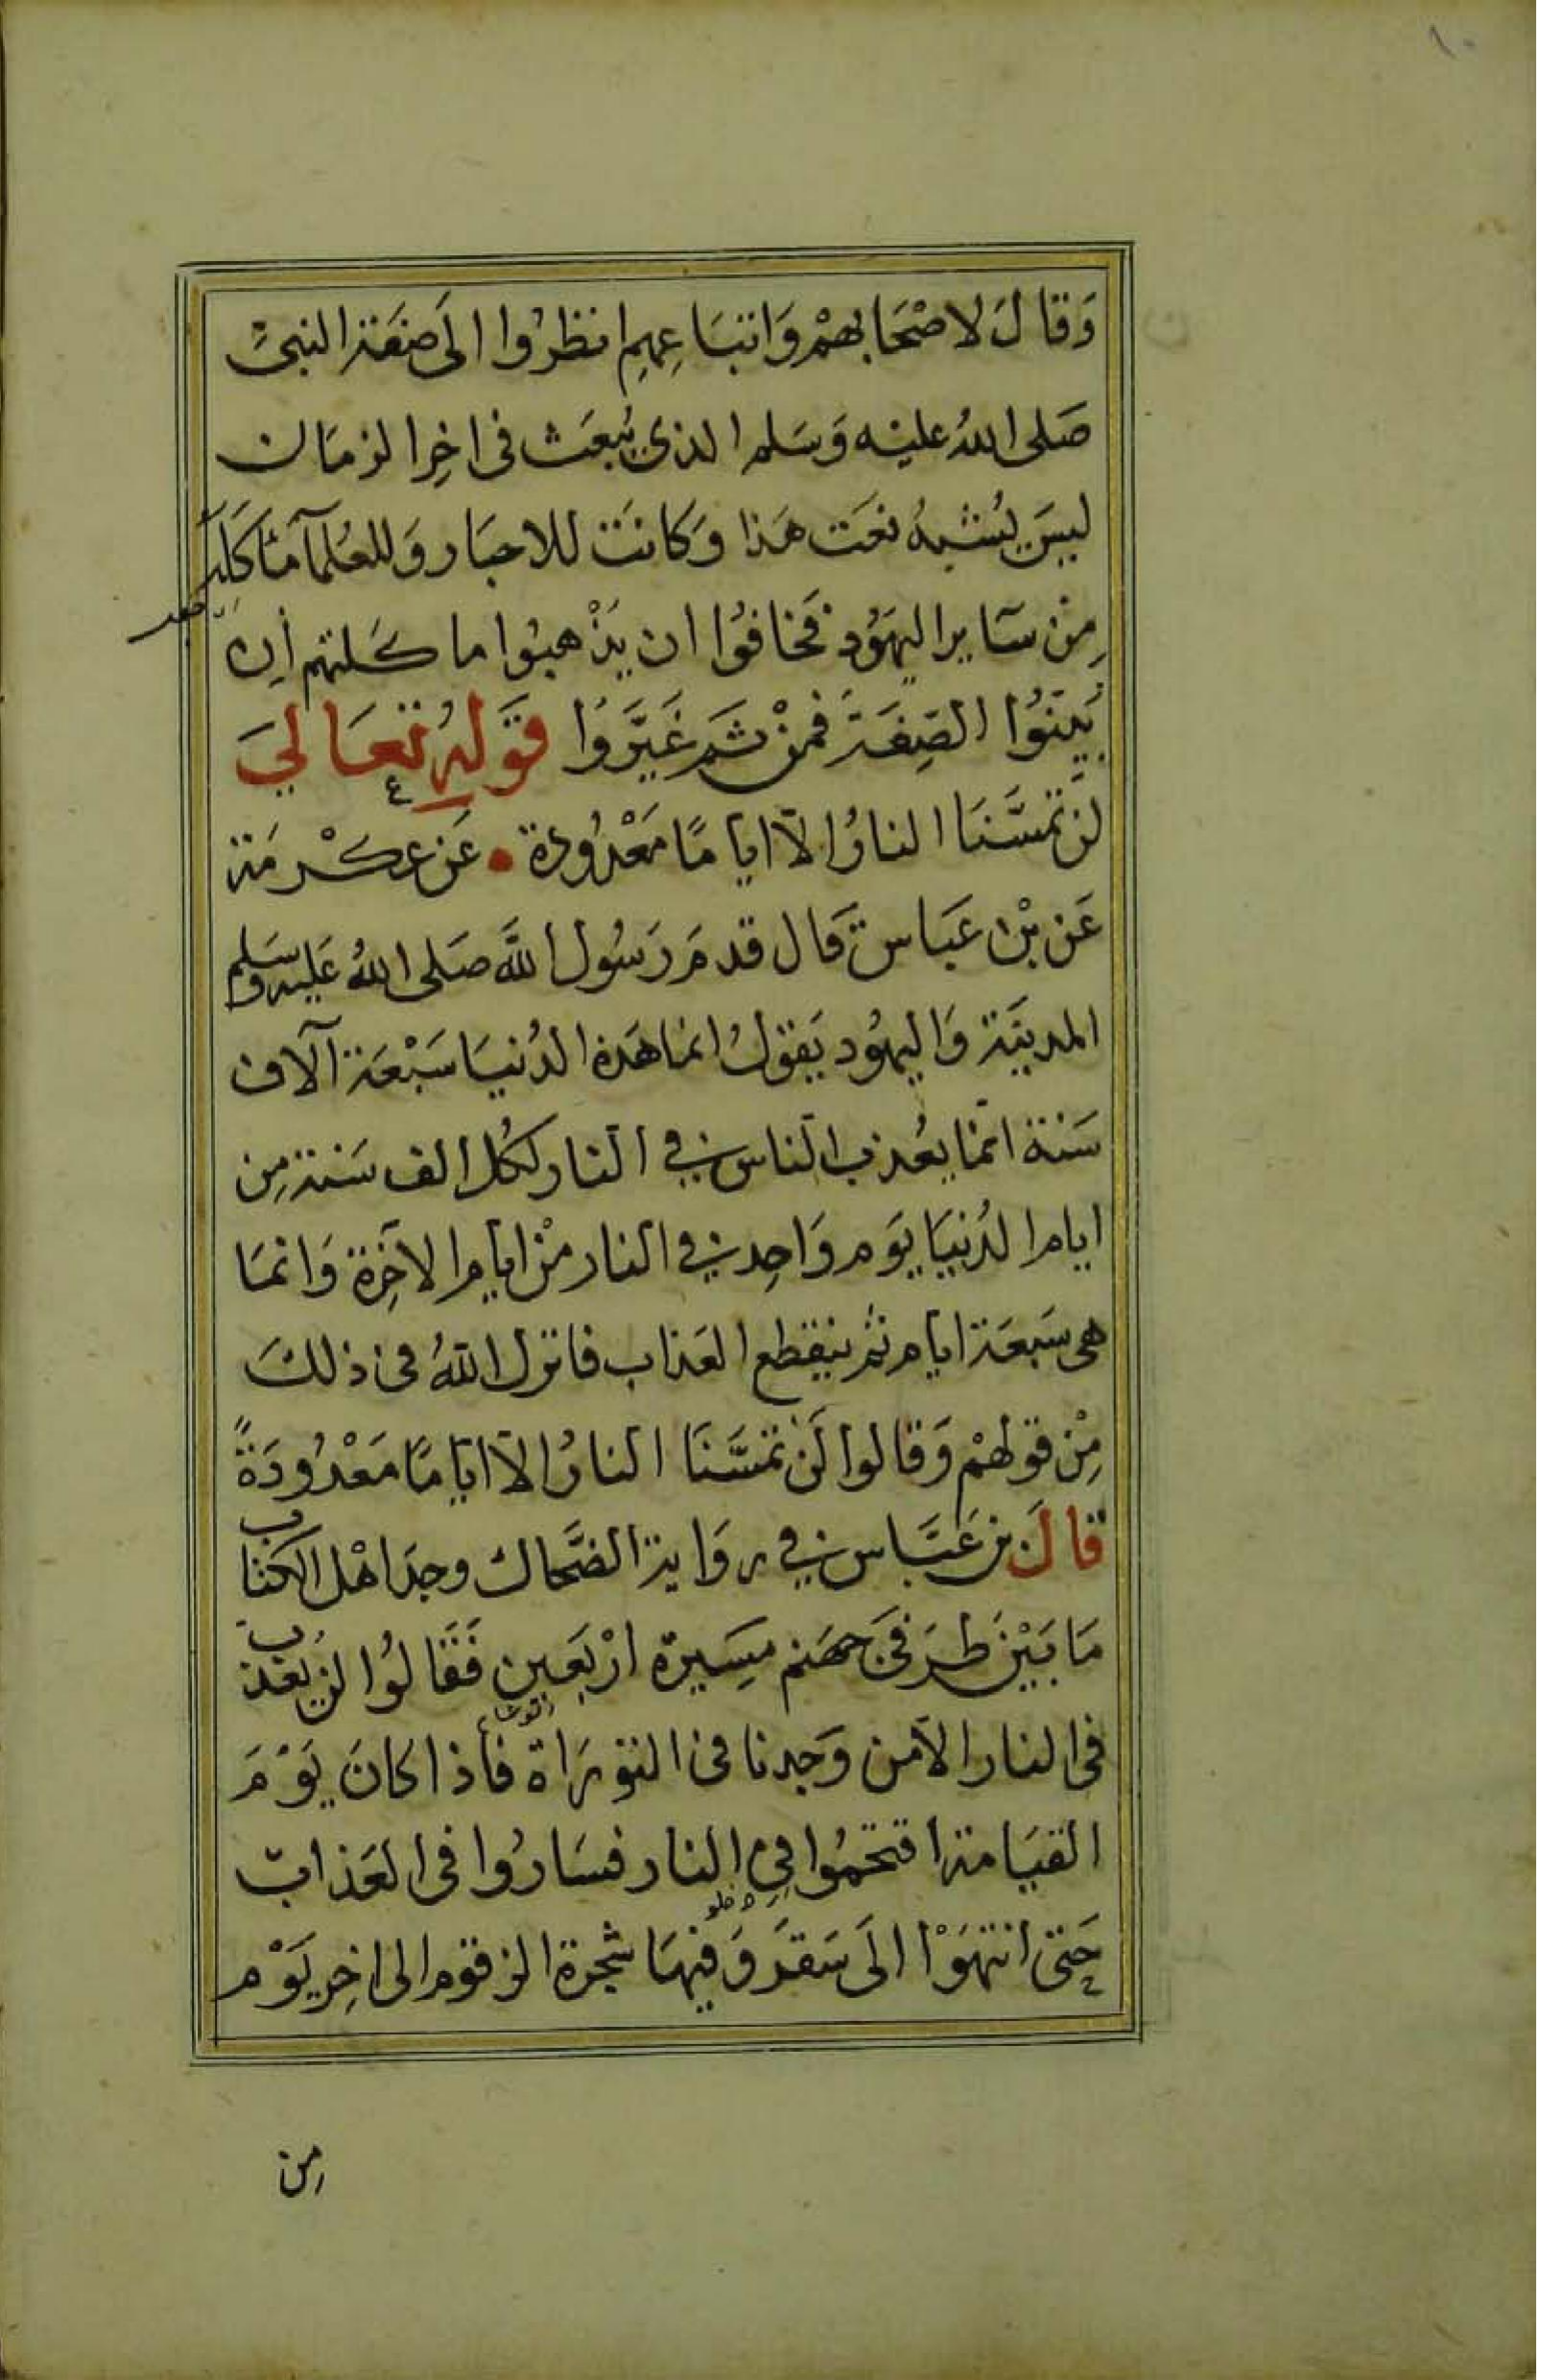 ١٠
وَقَالَ لاصْحَابهِمْ وَاتبَاعِهِم انظرُوا الَى صفَة النبىّ
صَلى اللهُ عليْه وَسَلم الذى يُبعَث فى اخِر الزمَان
ليسَ يُشبهُ نعَت هَذا وَكانَت للاحبَار وَللعُلمآ مَاكَلَة
مِن سَاير اليهَود فَخافُوا ان يَذْهبُوا ما كلتهم اِن
بَيّنُوا الصِفَة فمنْ ثَم غَيَّرَوُا قَولهُ تعَالىَ
لَن تمَسَّنَا النارُ الآ ايامًا مَعْدُودة • عَن عِكْرمَة
عَن بْن عَبَاس قَال قدمَ رَسُول اللَّه صَلى اللهُ عَليه وَسَلم
المدينَة وَاليهُود يَقولُ انمَا هَذه الدُنيَا سَبْعَة آلاف
سَنة انمّا يعُذب الناس في النار لكُل الف سَنة مِن
ايام الدُنيَا يَوم وَاحِد في النار منْ ايام الآخِرة وَانمَا
هى سَبعَة ايام ثم ينقطع العَذاب فانزل اللهُ فى ذلكَ
مِنْ قولهمْ وَقالوا لَن تمَسَّنَا النارُ الآ ايَامًا مَعْدُودَةً
قالَ بن عَبَّاس في روَاية الضَّحاك وجدَ اهْل الكتاب
مَا بَيْن طرَفىَ جهَنم مسِيرة ارْبَعين فَقَالُوا لن يعَذب
فى النار الا من وَجدنا فى التورَاة فأذا كانَ يَوْمَ
القيَامة اقتحمُوا فِي النار فسَارُوا فى العَذاب
حَتى انتهَوْا الَى سَقرَ وَفيهَا شجرة الزقوم الى اخِر يَوْم
من